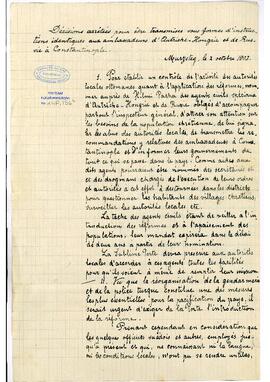 Décisions arrêtées pour être transmises sous formes d'instruc-
tions identiques aux ambassadeurs d'Autriche-Hongrie et de Rus-
sie à Constantinople.
Murzsteg, le 2 octobre 1903.
1. Pour établir un contrôle de l'activité des autorités
locales ottomanes quant à l'application des réformes, nom-
mer auprès de Hilmi Pacha des agents civils spéciaux
d'Autriche-Hongrie et de Russie obligés d'accompagner
partout l'inspecteur général, d'attirer son attention sur
les besoins de la population chrétienne, de lui signa-
ler les abus des autorités locales, de transmettre les re-
commandations y relatives des ambassadeurs à Cons-
tantinople et d'informer leurs gouvernements de
tout ce qui se passe dans le pays. Comme aides aux
dits agents pourraient être nommés des secrétaires et
des dragomans chargés de l'exécution de leurs ordres
et autorisés à cet effet à des tournées dans les districts
pour questionner les habitants des villages chrétiens,
surveiller les autorités locales etc.
La tâche des agents civils étant de veiller à l'in-
troduction des réformes et à l'apaisement des
populations, leur mandat expirera dans le délai
de deux ans à partir de leur nomination.
La Sublime Porte devra prescrire aux autorités
locales d'accorder à ces agents toutes les facilités
pour qu'ils soient à même de remplir leur mission
2. Vu que la réorganisation de la gendarmerie
et de la police turque constitue une des mesures
les plus essentielles pour la pacification du pays, il
serait urgent d'exiger de la Porte l'introduction
de la réforme.
Prenant cependant en considération que
les quelques officiers suédois et autres, employés jus-
qu'à présent et qui, ne connaissant ni la langue,
ni les conditions locales, n'ont pu se rendre utiles,